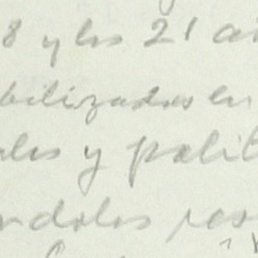 8 y los 21 añ
bilizados en
ales y polít
ndolos res